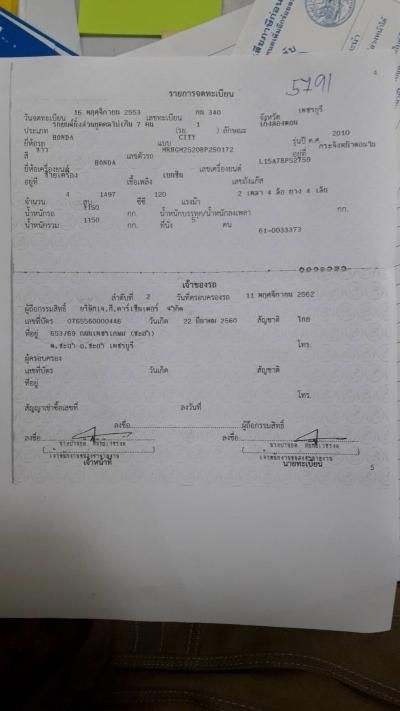 5791
4
รายการจดทะเบียน
วันจดทะเบียน 16 พฤศจิกายน 2553 เลขทะเบียน กน 340 จังหวัด เพชรบุรี
ประเภท รถยนต์นั่งส่วนบุคคลไม่เกิน 7 คน (รย. 1 ) ลักษณะ เก๋งสองตอน
ยี่ห้อรถ HONDA แบบ CITY รุ่นปี ค.ศ. 2010
สี ขาว เลขตัวรถ MRHGM2520BP250172 อยู่ที่
ยี่ห้อเครื่องยนต์ HONDA เลขเครื่องยนต์ L15A7BP52759
อยู่ที่ เชื้อเพลิง เบนซิน เลขถังแก๊ส
จำนวน 4 สูบ 1497 ซีซี 120 แรงม้า 2 เพลา 4 ล้อ ยาง 4 เส้น
น้ำหนักรถ 1150 กก. น้ำหนักบรรทุก/น้ำหนักลงเพลา กก.
น้ำหนักรวม 1150 กก. ที่นั่ง 5 คน
61-0033373
เจ้าของรถ
ลำดับที่ 2 วันที่ครอบครองรถ 11 พฤศจิกายน 2562
ผู้ถือกรรมสิทธิ์ บริษัท เจ.ดี.คาร์เซ็นเตอร์ จำกัด
เลขที่บัตร 0765560000446 วันเกิด 22 มีนาคม 2560 สัญชาติ ไทย
ที่อยู่ 653/69 ถนนเพชรเกษม (ชะอำ)
ต.ชะอำ อ.ชะอำ เพชรบุรี โทร.
ผู้ครอบครอง
เลขที่บัตร วันเกิด สัญชาติ
ที่อยู่
โทร.
สัญญาเช่าซื้อเลขที่ ลงวันที่
ลงชื่อ ผู้ถือกรรมสิทธิ์
ลงชื่อ ลงชื่อ
เจ้าหน้าที่ นายทะเบียน
5